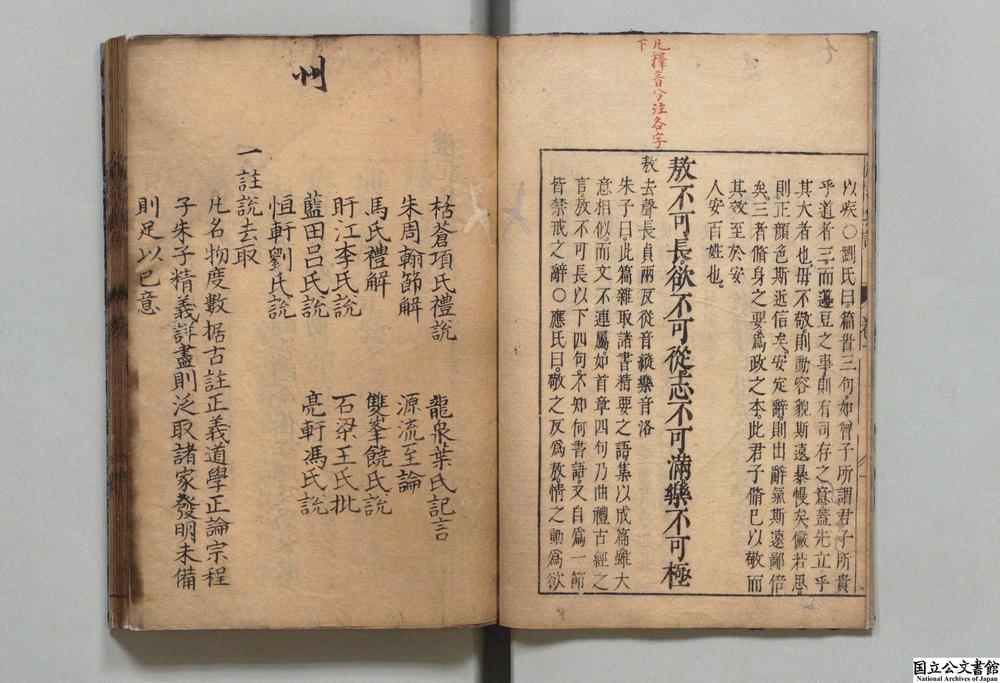 凡釋音分注各字
下
以疾〇劉氏曰篇首三句如曾子所謂君子所貴
乎道者三而籩豆之事則有司存之意蓋先立乎
其大者也毋不敬則動容貌斯遠暴慢矣儼若思
則正顏色斯近信矣安定辭則出辭氣斯遠鄙倍
矣三者脩身之要爲政之本此君子脩己以敬而
其效至於安
人安百姓也
敖不可長欲不可從志不可滿樂不可極
敖去聲長貞兩反從音縱樂音洛
朱子曰此篇雜取諸書精要之語集以成篇雖大
意相似而文不連屬如首章四句乃曲禮古經之
言敖不可長以下四句不知何書語又自爲一節
皆禁戒之辭〇應氏曰敬之反爲敖情之動爲欲
州
枯蒼項氏禮說 龍泉葉氏記言
朱周翰節解 源流至論
馬氏禮解 雙峯饒氏說
盱江李氏說 石梁王氏批
藍田呂氏說 亮軒馮氏說
恒軒劉氏說
一註說去取
凡名物度數据古註正義道學正論宗程
子朱子精義詳盡則泛取諸家發明未備
則足以已意
国立公文書館
National Archives of Japan